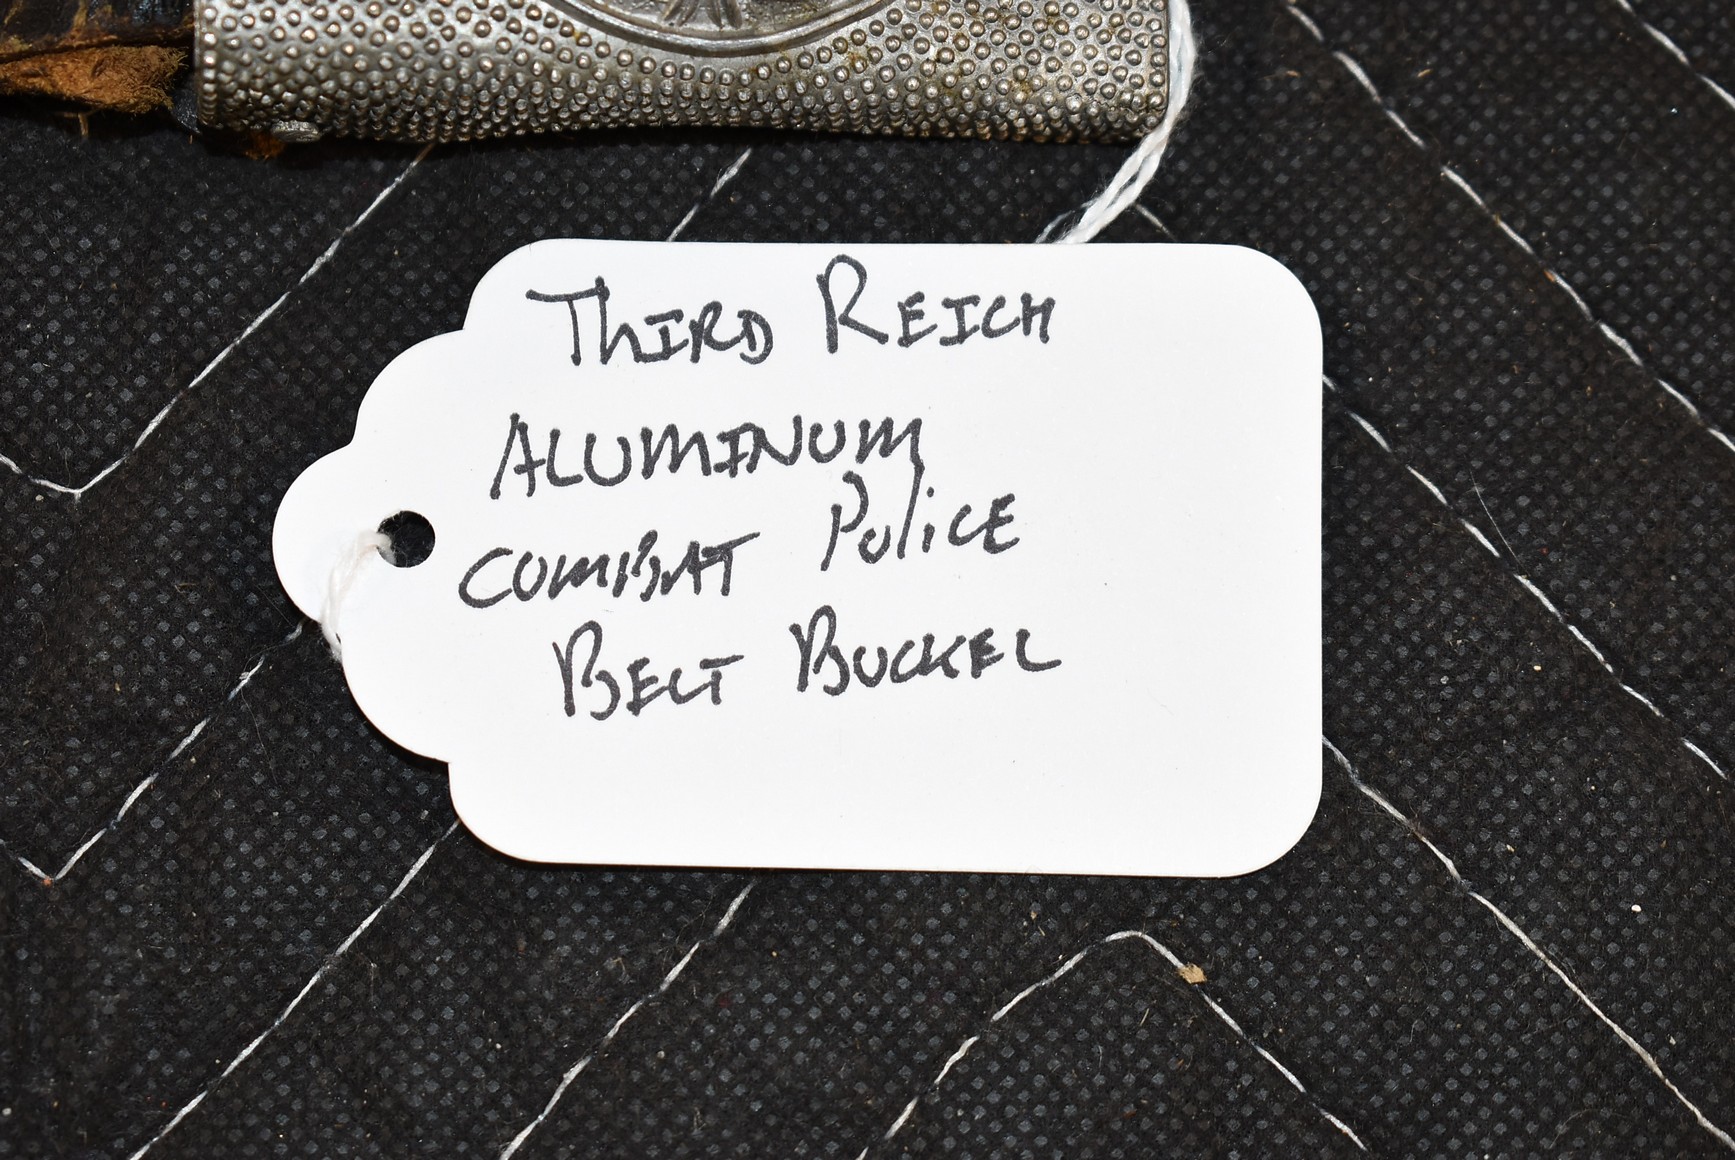 THIRD REICH
ALUMINUM
COMBAT POLICE
BELT BUCKEL